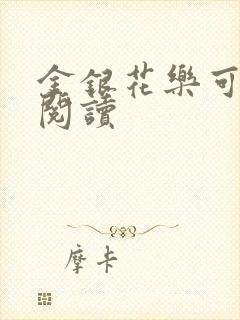 金銀花樂可
閱讀
摩卡